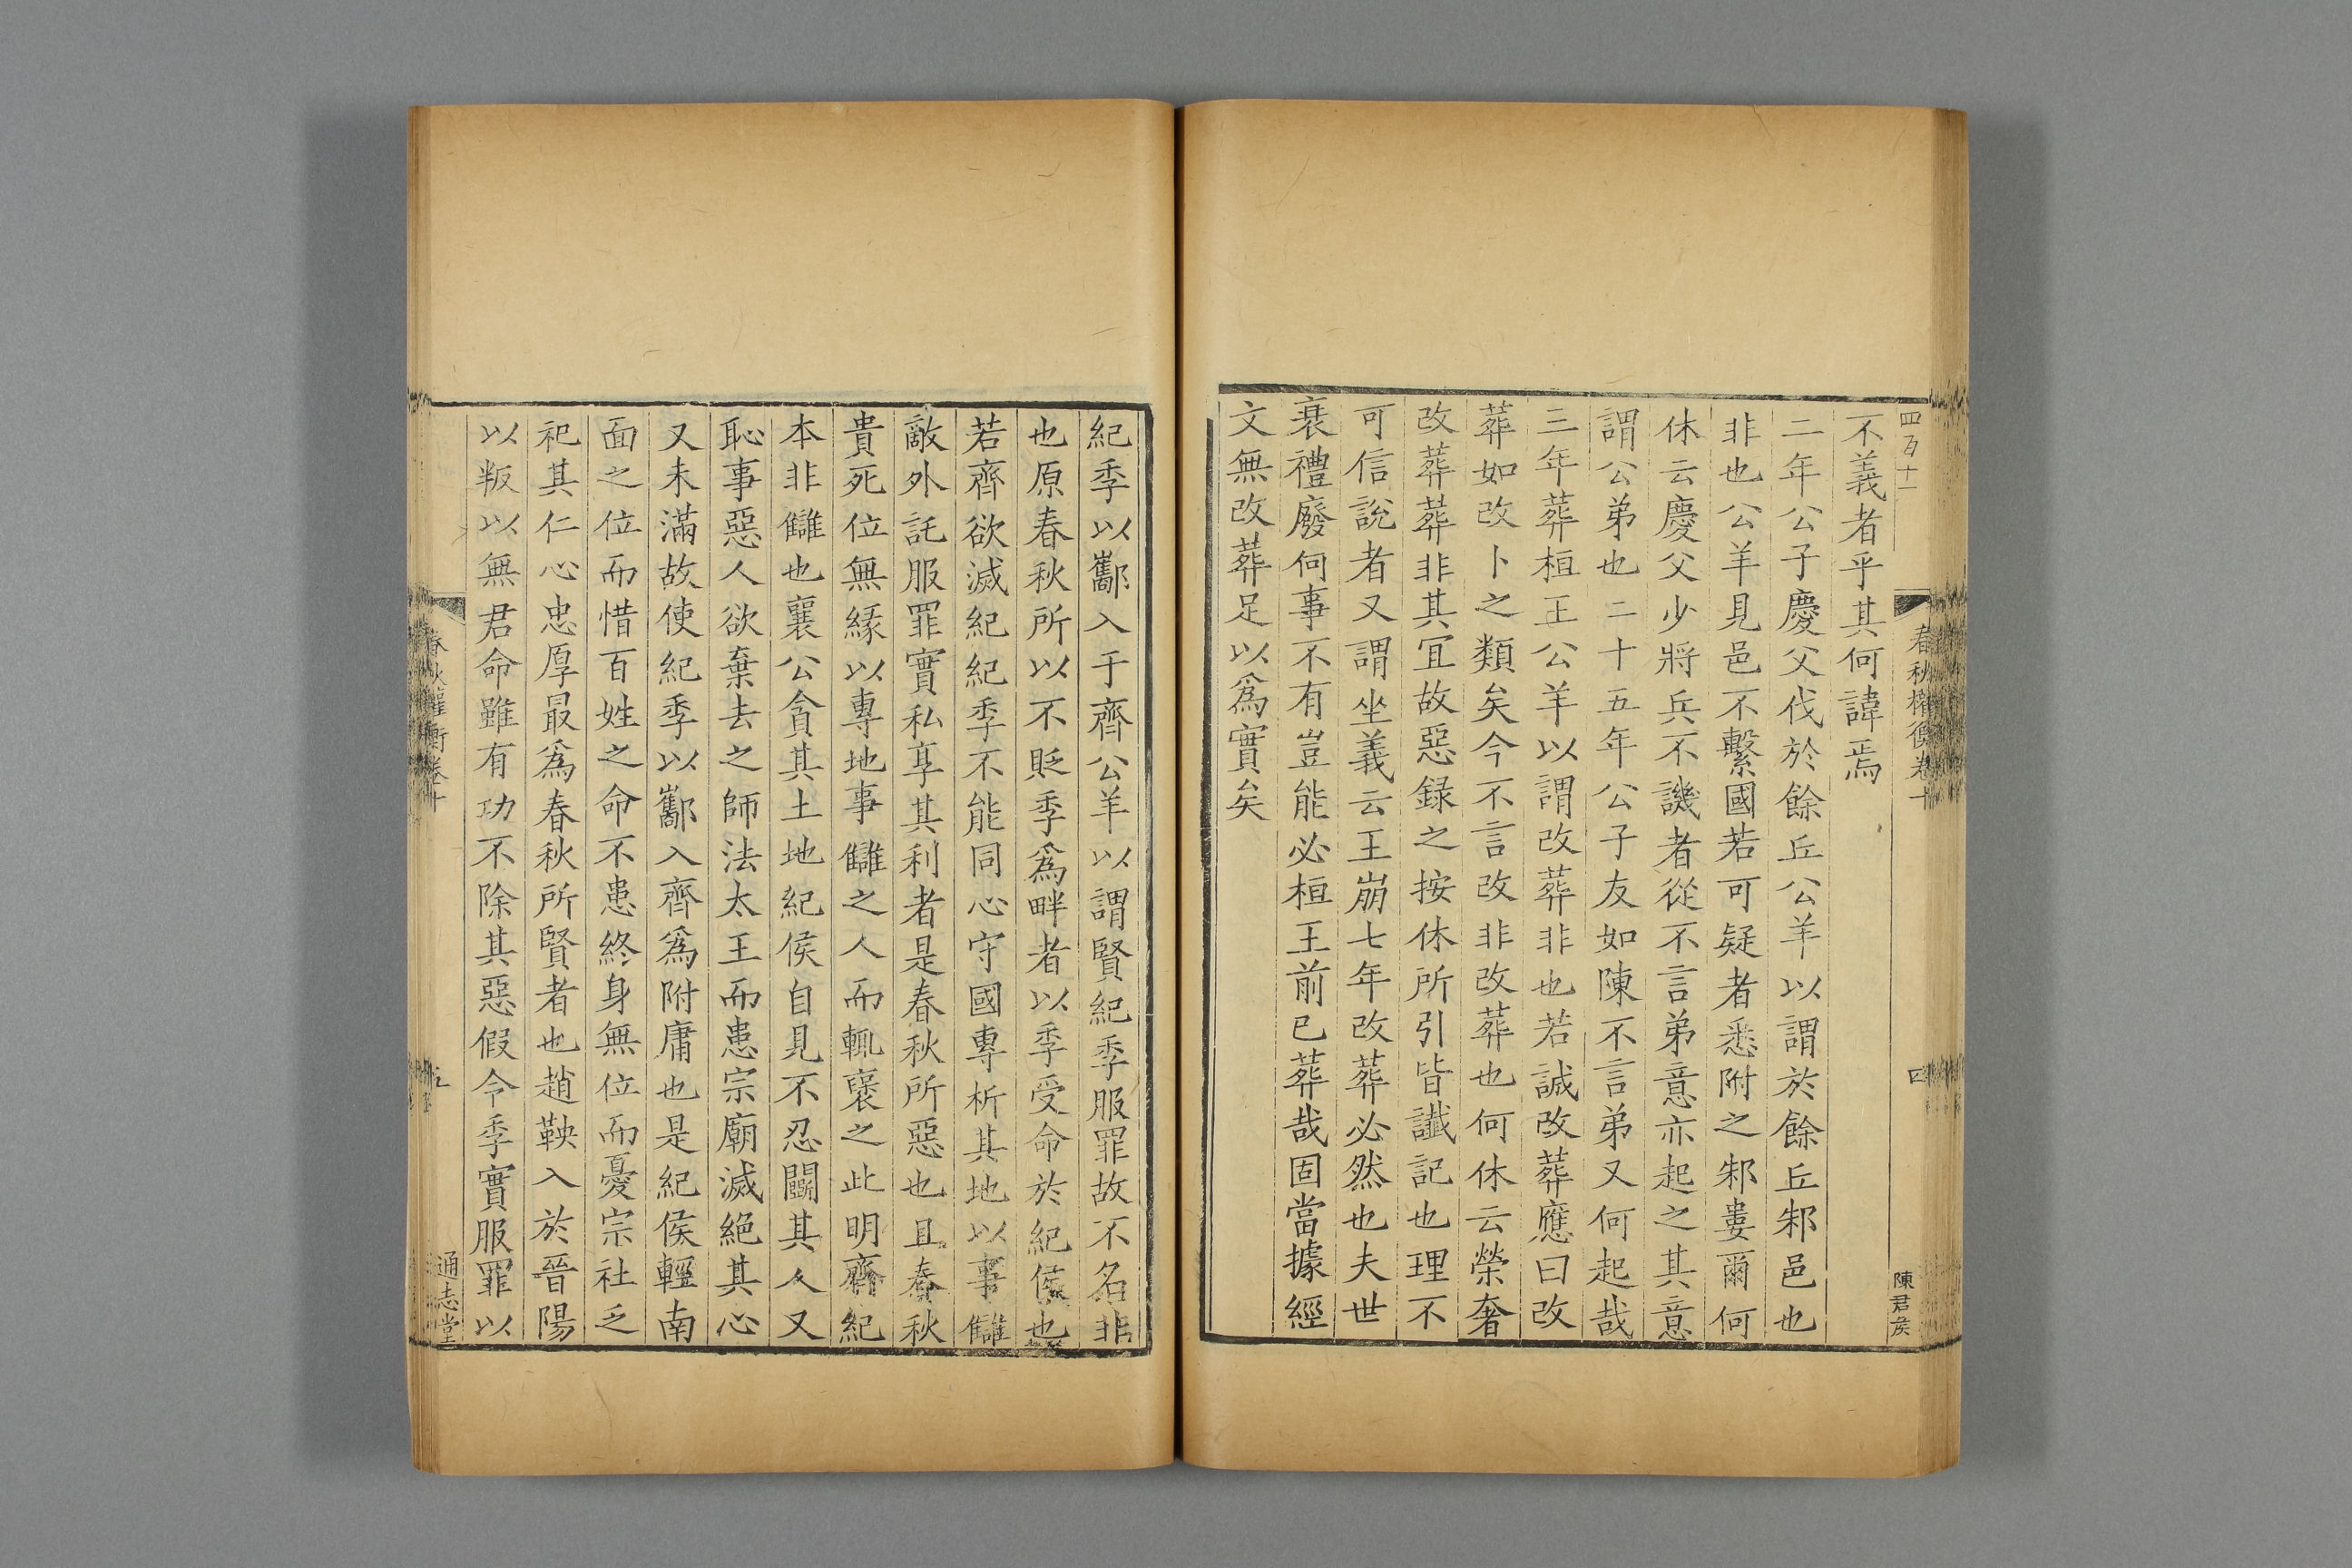 四百十一
春秋權衡卷十
四
陳君侯
不義者乎其何諱焉
二年公子慶父伐於餘丘公羊以謂於餘丘邾邑也
非也公羊見邑不繫國若可疑者悉附之邾婁爾何
休云慶父少將兵不譏者從不言弟意亦起之其意
謂公弟也二十五年公子友如陳不言弟又何起哉
三年葬桓王公羊以謂改葬非也若誠改葬應曰改
葬如改卜之類矣今不言改非改葬也何休云榮奢
改葬葬非其冝故惡録之按休所引皆讖記也理不
可信說者又謂坐義云王崩七年改葬必然也夫世
衰禮廢何事不有豈能必桓王前已葬哉固當據經
文無改葬足以爲實矣
紀季以酅入于齊公羊以謂賢紀季服罪故不名非
也原春秋所以不貶季爲畔者以季受命於紀侯也
若齊欲滅紀紀季不能同心守國專析其地以事讎
敵外託服罪實私享其利者是春秋所惡也且春秋
貴死位無緣以專地事讎之人而輒襃之此明齊紀
本非讎也襄公貪其土地紀侯自見不忍鬭其人又
恥事惡人欲棄去之師法太王而患宗廟滅絕其心
又未滿故使紀季以酅入齊爲附庸也是紀侯輕南
面之位而惜百姓之命不患終身無位而憂宗社乏
祀其仁心忠厚最爲春秋所賢者也趙鞅入於晉陽
以叛以無君命雖有功不除其惡假令季實服罪以
春秋權衡卷十
五
通志堂